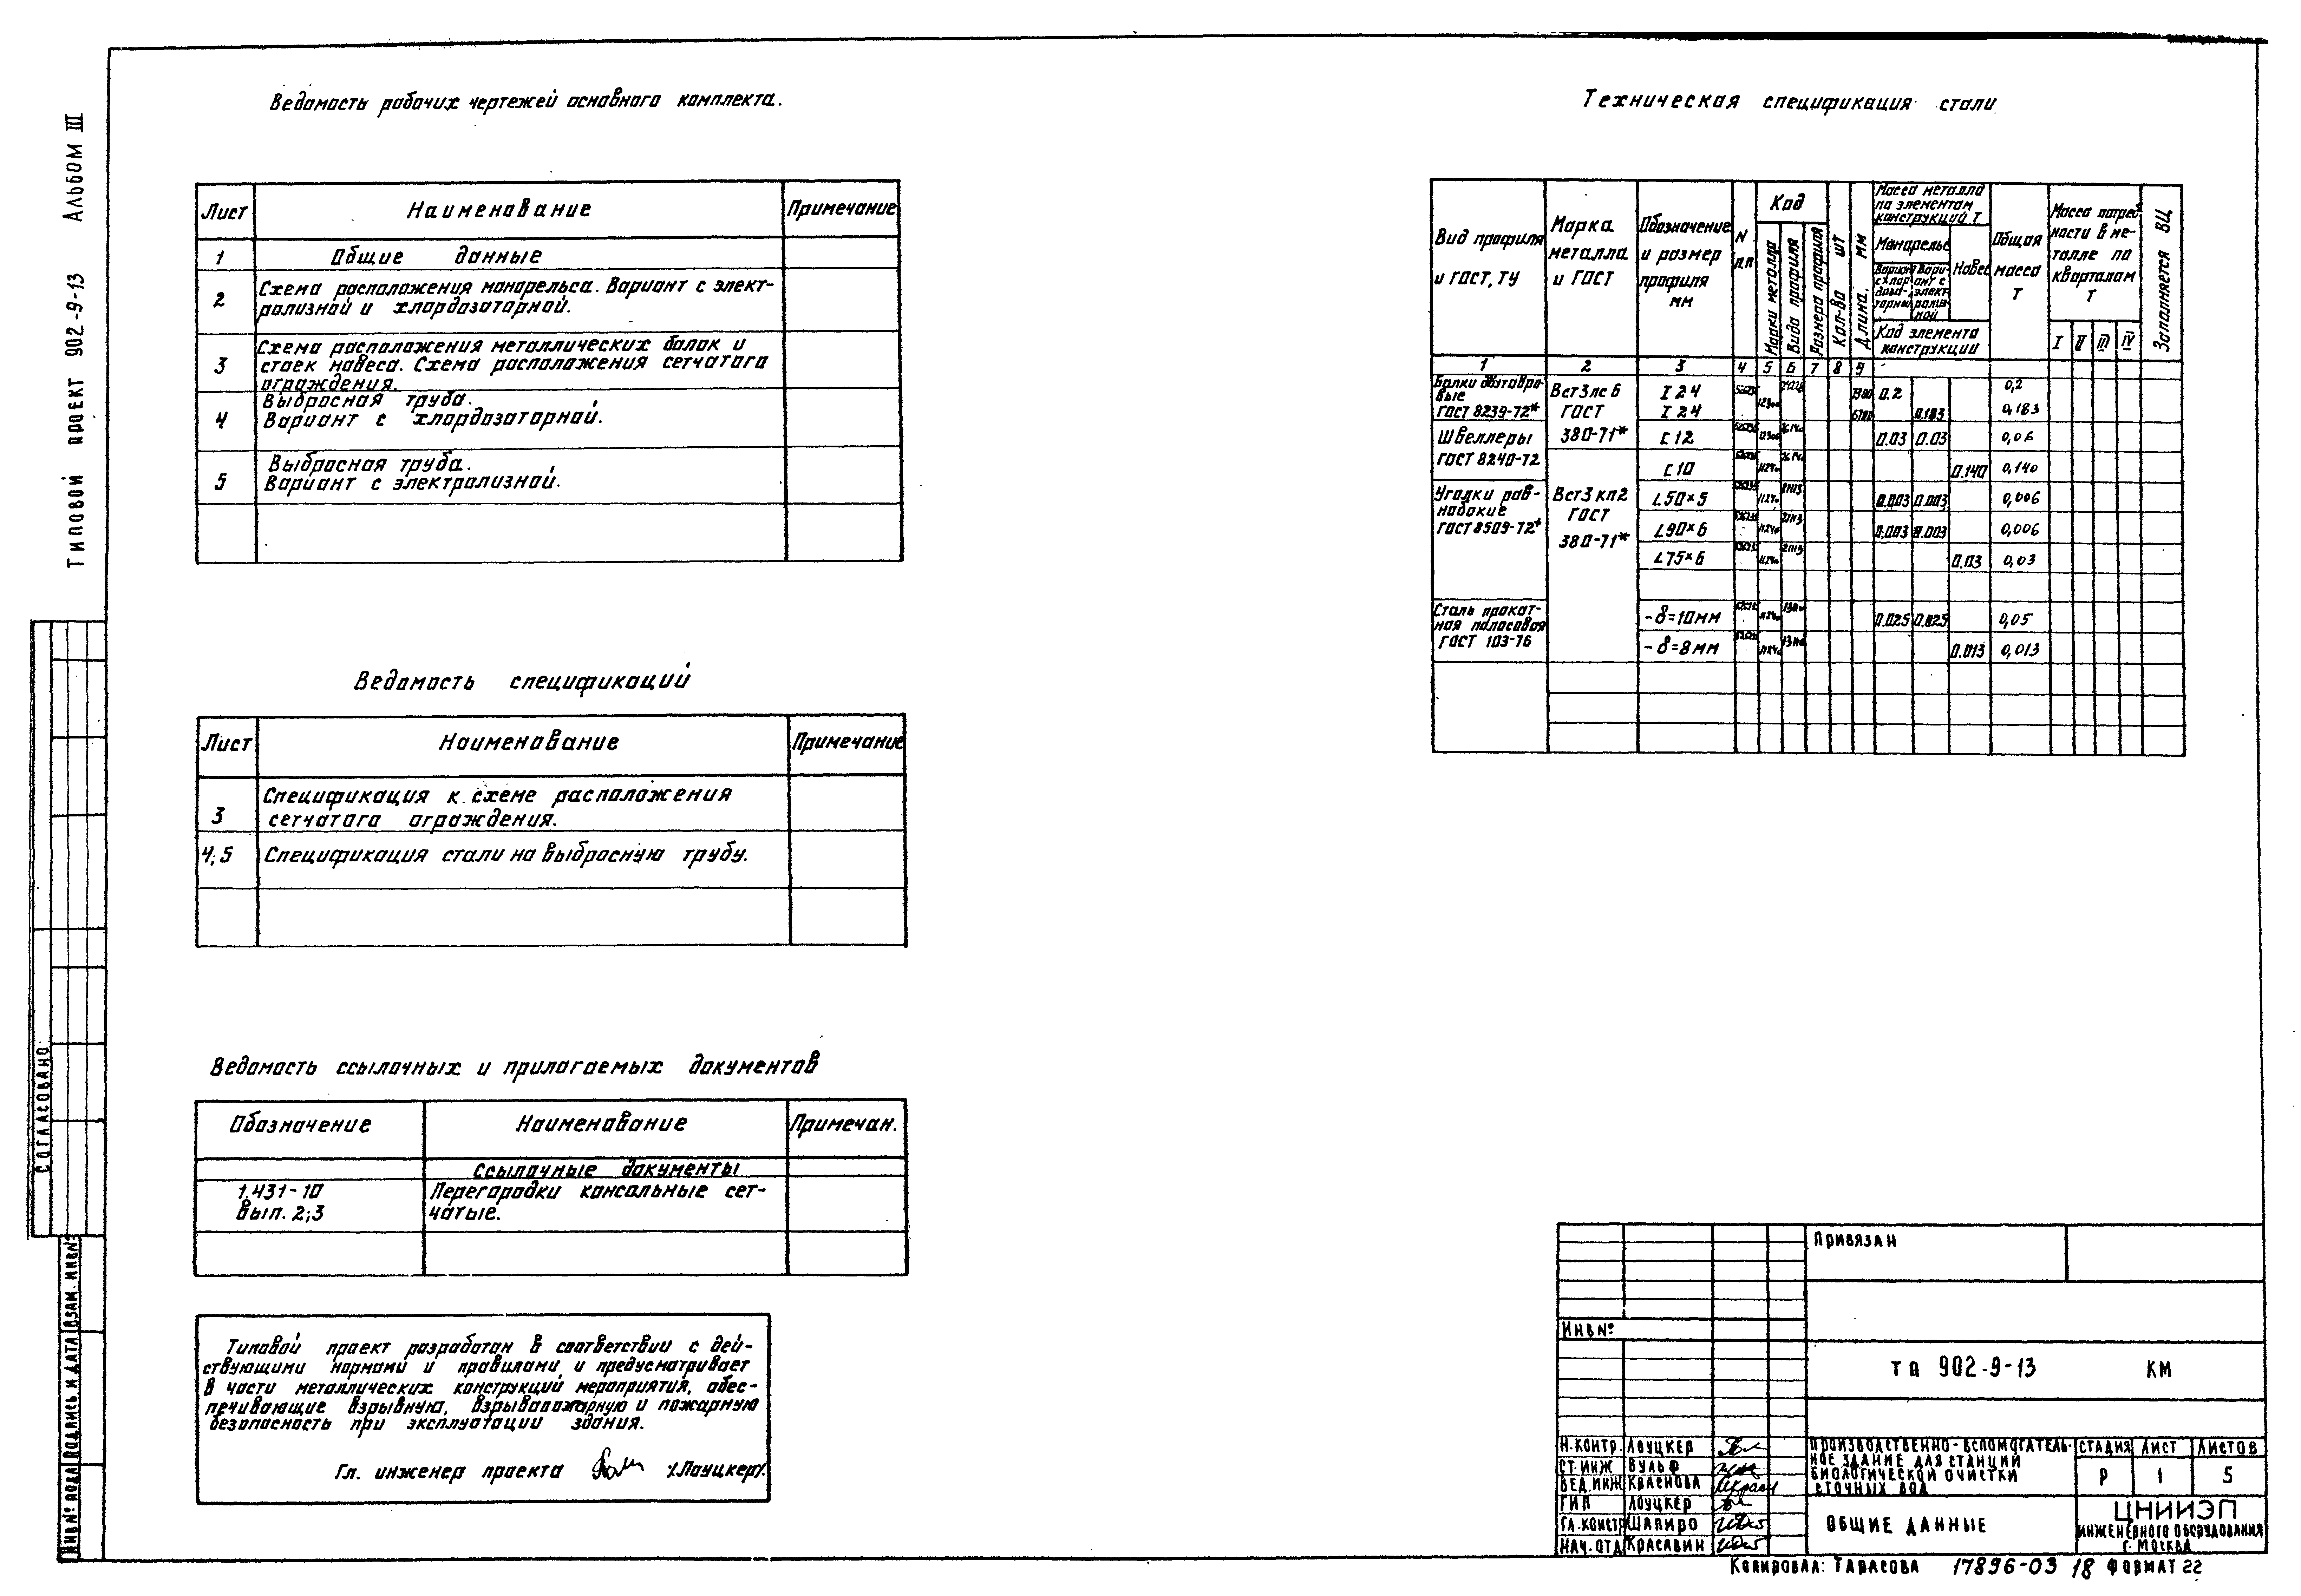 Типовой проект 902-9-13 Альбом III
Ведомость рабочих чертежей основного комплекта.
Лист Наименование Примечание
1 Общие данные
2 Схема расположения монорельса. Вариант с элект-
ролизной и хлордозаторной.
3 Схема расположения металлических балок и
стоек навеса. Схема расположения сетчатого
ограждения.
4 Выбросная труба.
Вариант с хлордозаторной.
5 Выбросная труба.
Вариант с электролизной.
Ведомость спецификаций
Лист Наименование Примечание
3 Спецификация к схеме расположения
сетчатого ограждения.
4;5 Спецификация стали на выбросную трубу.
Ведомость ссылочных и прилагаемых документов
Обозначение Наименование Примечан.
Ссылочные документы
1.431-10 Перегородки консольные сет-
Вып. 2;3 чатые.
Типовой проект разработан в соответствии с дей-
ствующими нормами и правилами и предусматривает
в части металлических конструкций мероприятия, обес-
печивающие взрывную, взрывопожарную и пожарную
безопасность при эксплуатации здания.
Гл. инженер проекта /Лоуцкер/.
Техническая спецификация стали
Вид профиля и ГОСТ, ТУ
Марка металла и ГОСТ
Обозначение и размер профиля мм
N п.п
Код
Марки металла
Вида профиля
Размера профиля
Кол-во шт
Длина, мм
Масса металла по элементам конструкций Т
Монорельс
Вариант с хлордоза-торный
Вариант с электролизной
Навес
Код элемента конструкции
Общая масса Т
Масса потребности в металле по кварталам Т
I II III IV
Заполняется ВЦ
1 2 3 4 5 6 7 8 9
Балки двутавро-
вые
ГОСТ 8239-72*
Вст3пс6
ГОСТ
380-71*
I 24 0.2 0,2
I 24 0.183 0,183
Швеллеры
ГОСТ 8240-72
С 12 0.03 0.03 0,06
С 10 0.140 0,140
Уголки рав-
нобокие
ГОСТ 8509-72*
Вст3кп2
ГОСТ
380-71*
L50×5 0.003 0.003 0,006
L90×6 0.003 0.003 0,006
L75×6 0.03 0,03
Сталь прокат-
ная полосовая
ГОСТ 103-76
-δ=10мм 0.025 0.025 0,05
-δ=8мм 0.013 0,013
СОГЛАСОВАНО
ИНВ№ ПОДЛ ПОДПИСЬ И ДАТА ВЗАМ. ИНВ№
Привязан
ИНВ№
ТП 902-9-13 КМ
Н.КОНТР. ЛОУЦКЕР
СТ.ИНЖ ВУЛЬФ
ВЕД.ИНЖ КРАСНОВА
ГИП ЛОУЦКЕР
ГЛ.КОНСТР ШАПИРО
НАЧ.ОТД КРАСАВИН
ПРОИЗВОДСТВЕННО-ВСПОМОГАТЕЛЬ-
НОЕ ЗДАНИЕ ДЛЯ СТАНЦИЙ
БИОЛОГИЧЕСКОЙ ОЧИСТКИ
СТОЧНЫХ ВОД
СТАДИЯ ЛИСТ ЛИСТОВ
Р 1 5
ОБЩИЕ ДАННЫЕ
ЦНИИЭП
ИНЖЕНЕРНОГО ОБОРУДОВАНИЯ
Г. МОСКВА
Копировал: Тарасова 17896-03 18 ФОРМАТ 22